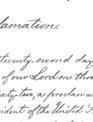 lamation.
twenty-second day
of our Lord one thou
ixty two, a proclama
ident of the United S